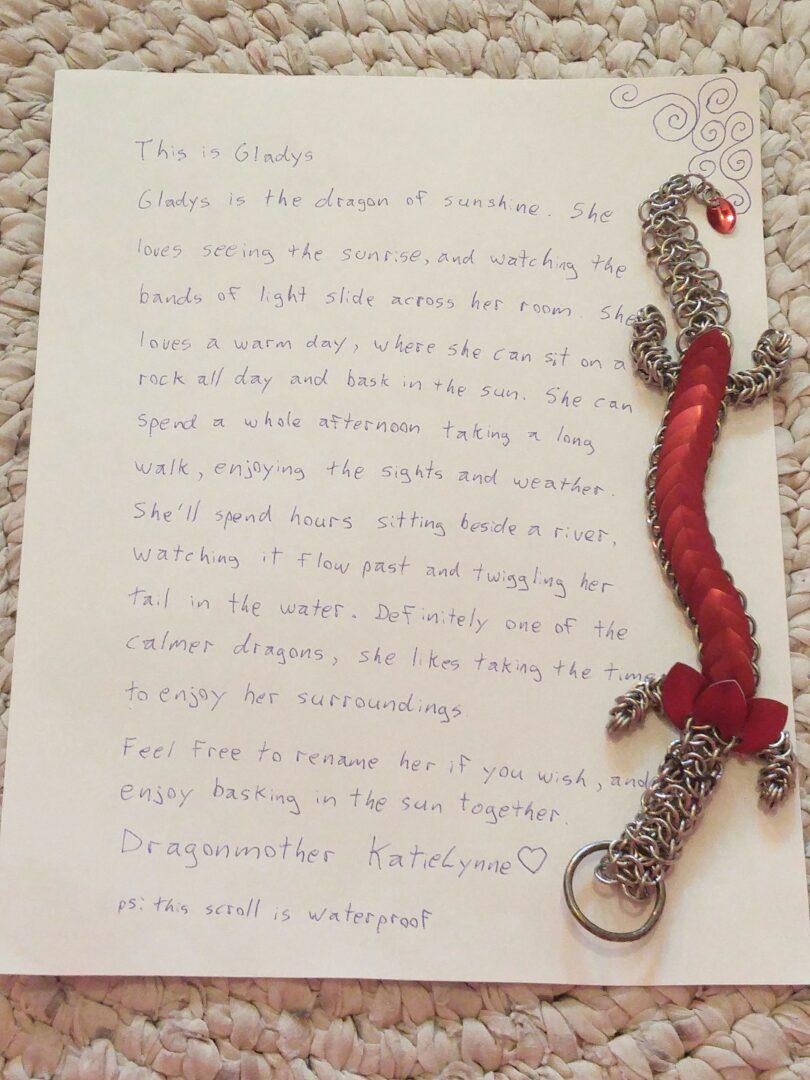 This is Gladys
Gladys is the dragon of sunshine. She
loves seeing the sunrise, and watching the
bands of light slide across her room. She
loves a warm day, where she can sit on a
rock all day and bask in the sun. She can
spend a whole afternoon taking a long
walk, enjoying the sights and weather.
She'll spend hours sitting beside a river,
watching it flow past and twiggling her
tail in the water. Definitely one of the
calmer dragons, she likes taking the time
to enjoy her surroundings.
Feel free to rename her if you wish, and
enjoy basking in the sun together.
Dragonmother KatieLynne♡
ps: this scroll is waterproof